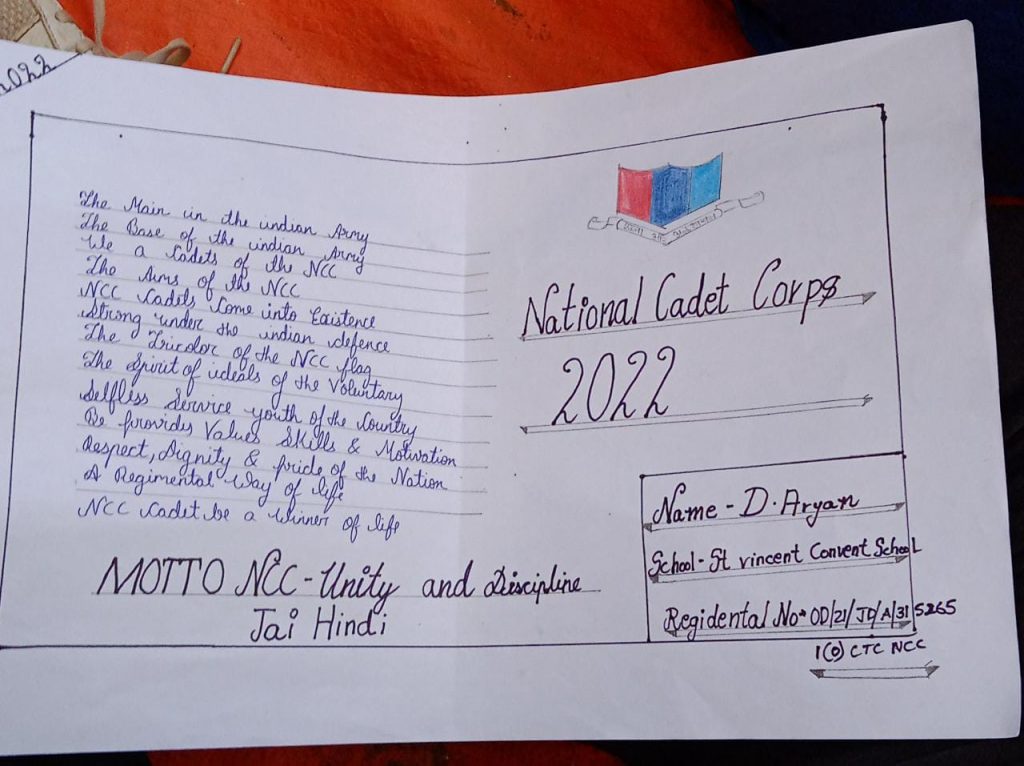 2022
The Main in the indian Army
The Base of the indian Army
We a Cadets of the NCC
The Aims of the NCC
NCC Cadets Come into Existence
Strong under the indian defence
The Tricolor of the NCC flag
The Spirit of ideals of the Voluntary
Selfless Service youth of the Country
Be provides Values Skills & Motivation
Respect, Dignity & pride of the Nation
A Regimental Way of life
NCC Cadet be a Winner of life
MOTTO NCC - Unity and Discipline
Jai Hindi
National Cadet Corps
2022
Name - D. Aryan
School - St vincent Convent School
Regidental No- OD/21/JD/A/315265
1(O) CTC NCC